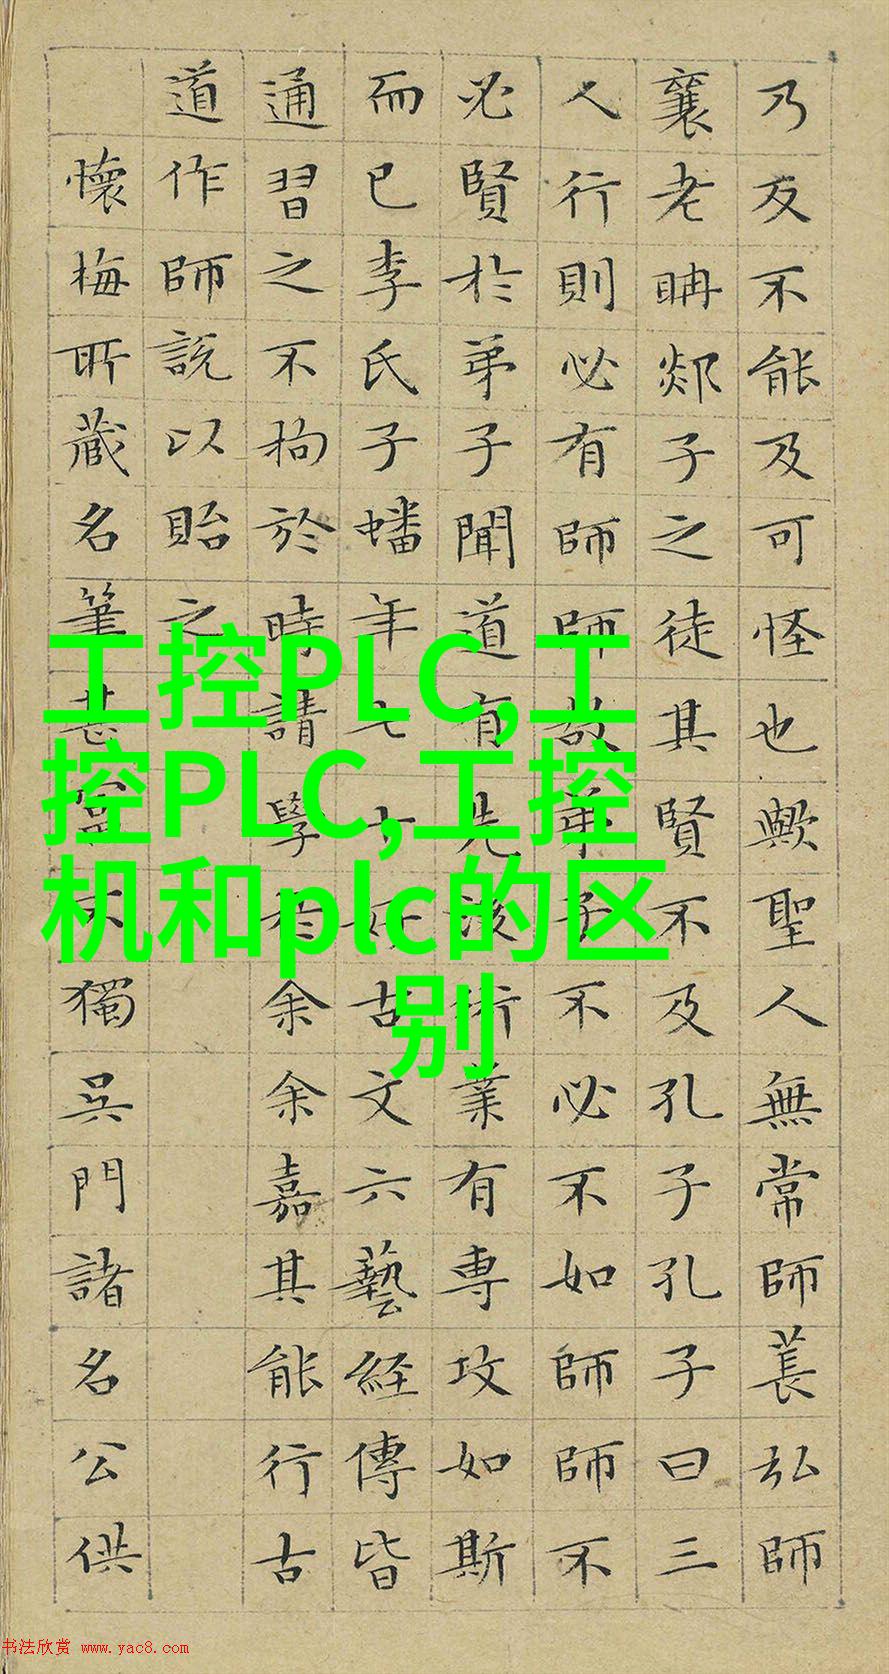 乃反不能及可怪也歟聖人無常師萇弘師
襄老聃郯子之徒其賢不及孔子孔子曰三
人行則必有師師故弟子不必不如師師不
必賢於弟子聞道有先後術業有專攻如斯
而已李氏子蟠年七十好古文六藝経傳皆
通習之不拘於時請學於余余嘉其能行古
道作師說以貽之
懷梅所藏名筆甚富不獨吳門諸名公供
工控PLC,工
控PLC,工控
机和plc的区
别
书法欣赏 www.yac8.com